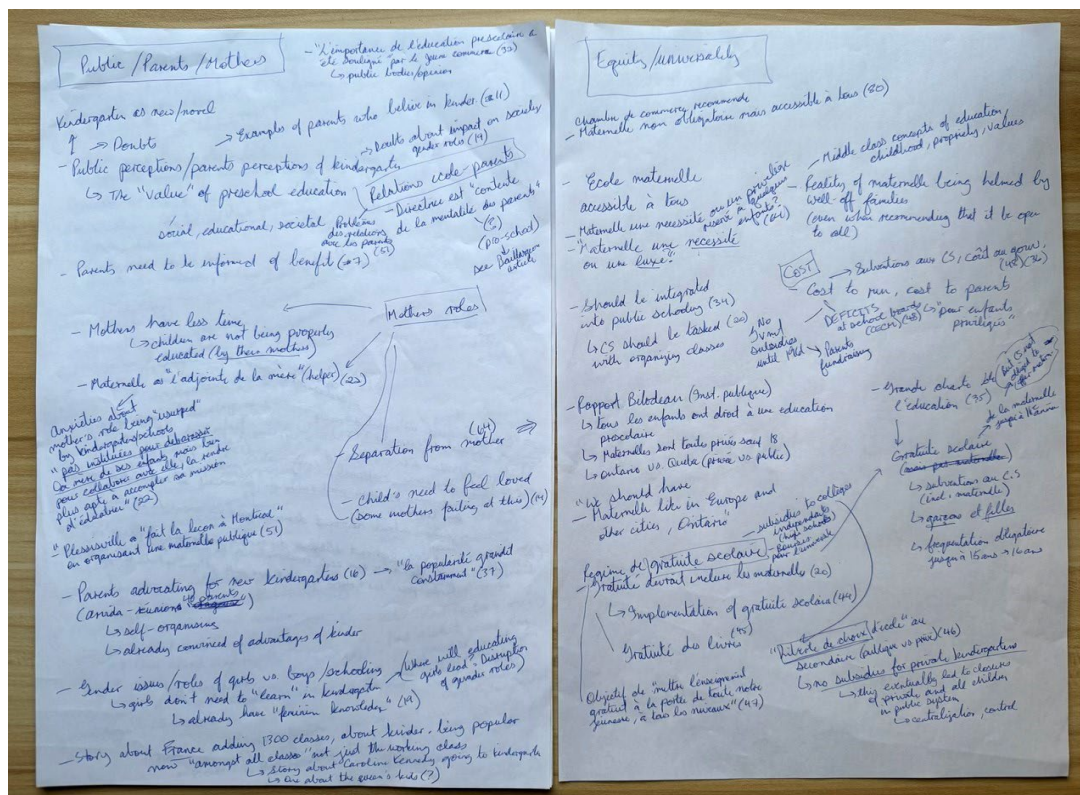 Public/Parents/Mothers
- "L'importance de l'éducation préscolaire a
été souligné" par le jeune commerce (32)
↳ public bodies/opinion
Kindergarten as new/novel
↑ → Doubts
→ Examples of parents who believe in kinder. (11)
- Public perceptions/parents perceptions of kindergarten
→ Doubts about impact on society,
gender roles (19)
↳ The "value" of preschool education
social, educational, societal
Relations école-parents
- Directrice est "contente
de la mentalité des parents"
(5)
(pro-school)
see Baillargeon
article
Problème
des relations
avec les parents
(51)
- Parents need to be informed of benefit (7)
Mothers roles
- Mothers have less time
↳ children are not being properly
educated (by their mothers)
- Maternelle as "l'adjointe de la mère" (helper) (22)
Anxieties about
mother's role being "usurped"
by kindergarten/schools
"pas instituées pour débarasser
la mère de ses enfants mais bien
pour collaborer avec elle, la rendre
plus apte à accomplir sa mission
d'éducation" (22)
- Separation from mother (14) ⇒
- Child's need to feel loved
(some mothers failing at this) (14)
"Plessisville a "fait la leçon à Montréal"
en organisant une maternelle publique (51)
- Parents advocating for new kindergartens (16) → "la popularité grandit
constamment" (37)
(Arvida - réunions 40 parents)
↳ self-organising
↳ already convinced of advantages of kinder
- Gender issues/roles of girls vs. boys/schooling
↳ girls don't need to "learn" in kindergarten
↳ already have "feminin knowledge" (19)
(Where will educating
girls lead? Disruption
of gender roles)
- Story about France adding 1300 classes, about kinder. being popular
now "amongst all classes" not just the working class
↳ Story about Caroline Kennedy going to kindergarten
↳ One about the queen's kids (?)
Equity/universality
Chambre de commerce recommende
- Maternelle non obligatoire mais accessible à tous (30)
- École maternelle
accessible à tous
- Maternelle une nécessité ou un privilège
réservé à quelques
enfants? (41)
- "Maternelle une necessité
ou une luxe?"
- Middle class concepts of education,
childhood, propriety, values
- Reality of maternelle being helmed by
well-off families
(even when recommending that it be open
to all)
COST
→ Subventions aux CS, coût au gouv.
(42) (36)
- Cost to run, cost to parents
DEFICITS
at school boards
(CECM) (48)
↳ "pour enfants
privilegiés"
- Should be integrated
into public schooling (34)
↳ CS should be tasked (20)
with organizing classes
↳ No
subsidies
until 1961
↳ Parents
fundraising
- Rapport Bilodeau (Inst. publique)
↳ tous les enfants ont droit à une education
préscolaire
↳ Maternelles sont toute privés sauf 18
↳ Ontario vs. Quebec (privée vs public)
- Grande charte de
l'éducation (35)
but CS not
obliged to
offer matern.
↓
Gratuité scolaire
de la maternelle
jusqu'à 11e année
↳ subventions au C.S
(incl. maternelle)
↳ garçons et filles
↳ frequentation obligatoire
jusqu'à 15 ans → 16 ans
"We should have
- Maternelle like in Europe and
other cities, Ontario"
Regime de gratuité scolaire
- subsidies to colleges
independants
(high schools)
- Bourses
pour l'université
- Gratuité devrait inclure les maternelles (20)
↳ Implementation of gratuité scolaire (44)
Gratuité des livres (45)
Objectif de "mettre l'enseignement
gratuit à la porte de toute notre
jeunesse, à tous les niveaux" (47)
"Liberté de choix d'école" au
secondaire (publique vs privé) (46)
↳ no subsidies for private kindergartens
↳ this eventually led to closures
of private and all children
in public system
↳ centralization, control